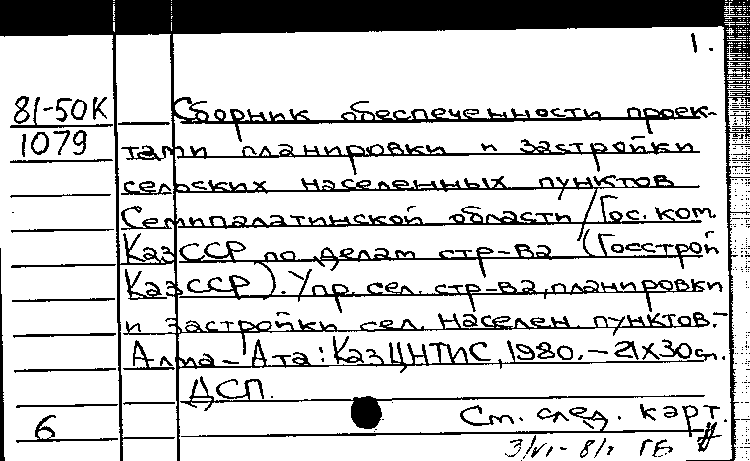 1.
81-50К Сборник обеспеченности проек-
1079 тами планировки и застройки
сельских населенных пунктов
Семипалатинской области /Гос. ком.
КазССР по делам стр-ва (Госстрой
КазССР). Упр. сел. стр-ва, планировки
и застройки сел. населен. пунктов.-
Алма-Ата: КазЦНТИС, 1980.- 21х30см.
ДСП.
6 См. след. карт.
3/VI- 81г ГБ